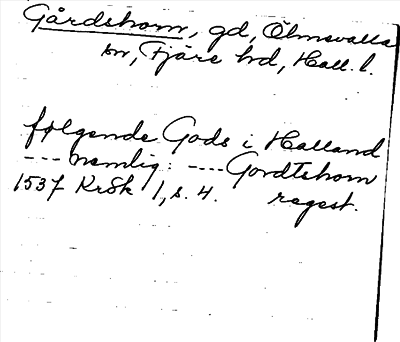 Gårdshom, gd, Ölmevalla
sn, Fjäre hd, Hall. l.
følgende Gods i Halland
--- nemlig: ---- Gordtshom
1537 KrSk 1, s. 4. regest.